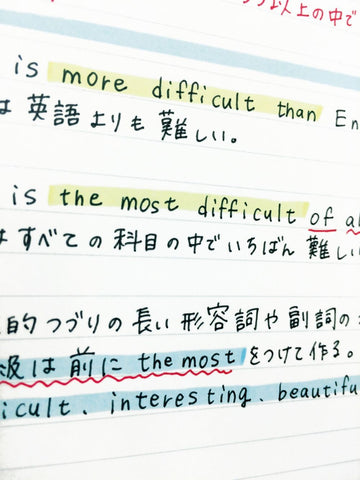 以上の中で
is more difficult than En
は英語よりも 難しい。
is the most difficult of al
はすべての科目の中でいちばん 難しい
的つづりの長い形容詞や副詞の
級は前に the most をつけて作る。
icult、interesting、beautifu